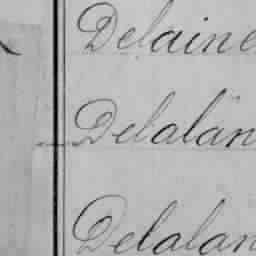 Delaine
Delalan
Delalan